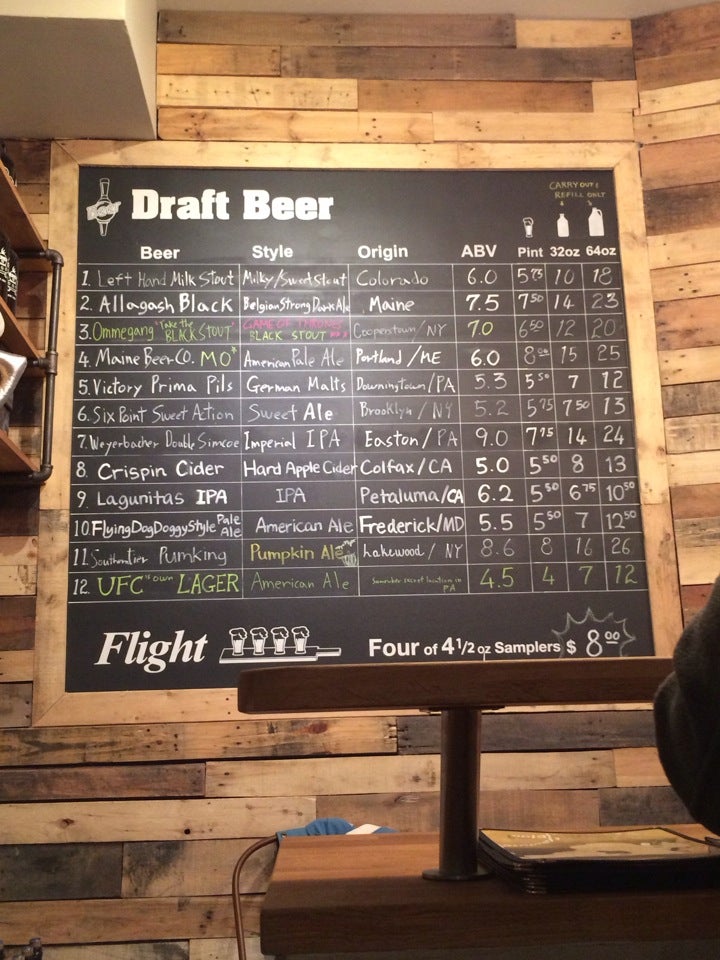 Draft Beer
CARRY OUT &
REFILL ONLY
Beer Style Origin ABV Pint 32oz 64oz
1. Left Hand Milk Stout Milky/Sweet Stout Colorado 6.0 5 75 10 18
2. Allagash Black Belgian Strong Dark Ale Maine 7.5 7 50 14 23
3. Ommegang "Take the BLACK STOUT" GAME OF THRONES BLACK STOUT Cooperstown/NY 7.0 6 50 12 20
4. Maine Beer CO. MO* American Pale Ale Portland/ME 6.0 8 00 15 25
5. Victory Prima Pils German Malts Downingtown/PA 5.3 5 50 7 12
6. Six Point Sweet Action Sweet Ale Brooklyn/NY 5.2 5 75 7 50 13
7. Weyerbacher Double Simcoe Imperial IPA Easton/PA 9.0 7 75 14 24
8. Crispin Cider Hard Apple Cider Colfax/CA 5.0 5 50 8 13
9. Lagunitas IPA IPA Petaluma/CA 6.2 5 50 6 75 10 50
10. Flying Dog Doggy Style Pale Ale American Ale Frederick/MD 5.5 5 50 7 12 50
11. Southern Tier Pumking Pumpkin Ale Lakewood/NY 8.6 8 16 26
12. UFC"s own LAGER American Ale Somewher secret location in PA 4.5 4 7 12
Flight Four of 4 1/2 oz Samplers $ 8 00